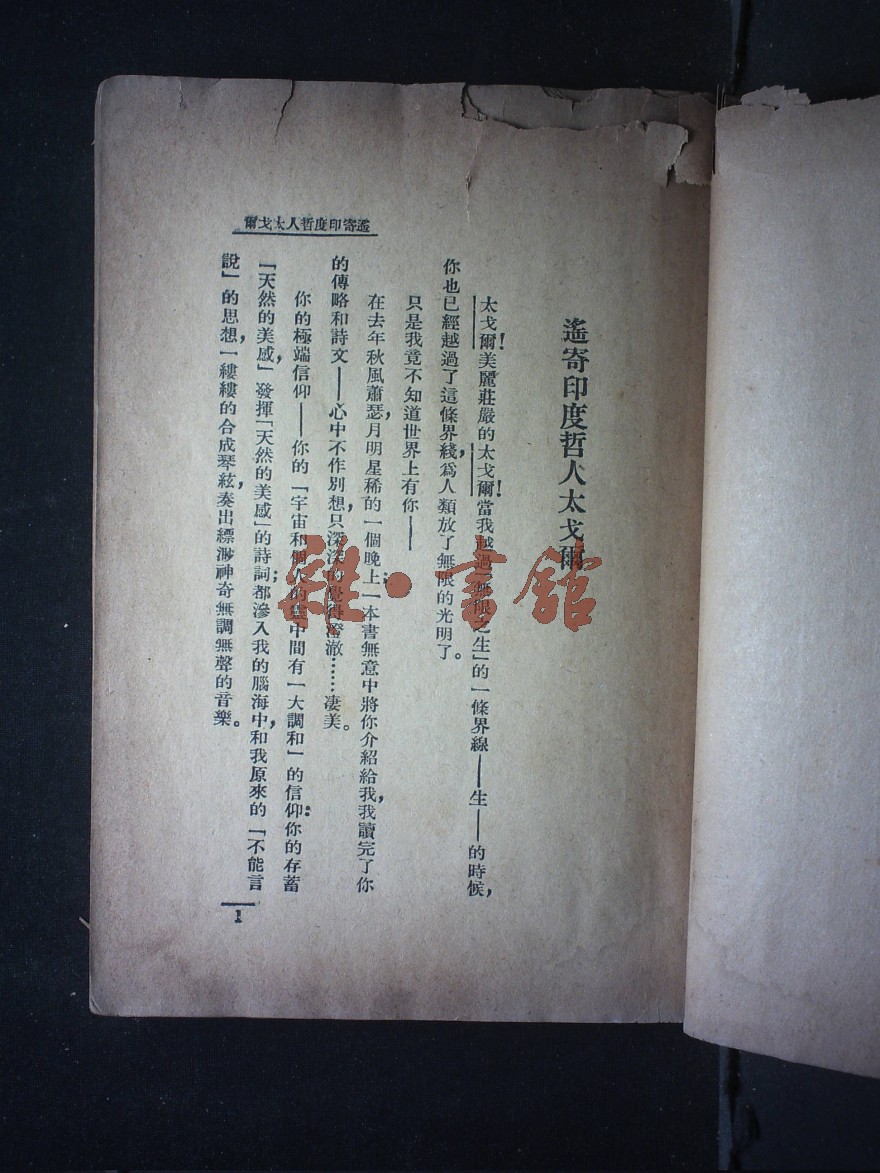 遙寄印度哲人太戈爾
遙寄印度哲人太戈爾
太戈爾!美麗莊嚴的太戈爾!當我越過「無限之生」的一條界線——生——的時候,
你也已經越過了這條界綫,爲人類放了無限的光明了。
只是我竟不知道世界上有你——
在去年秋風蕭瑟,月明星稀的一個晚上,一本書無意中將你介紹給我,我讀完了你
的傳略和詩文——心中不作別想,只深深的覺得澄澈……凄美。
你的極端信仰——你的「宇宙和個人的靈中間有一大調和」的信仰;你的存蓄
「天然的美感」,發揮「天然的美感」的詩詞;都滲入我的腦海中,和我原來的「不能言
說」的思想,一縷縷的合成琴絃,奏出縹渺神奇無調無聲的音樂。
1
雜·書館